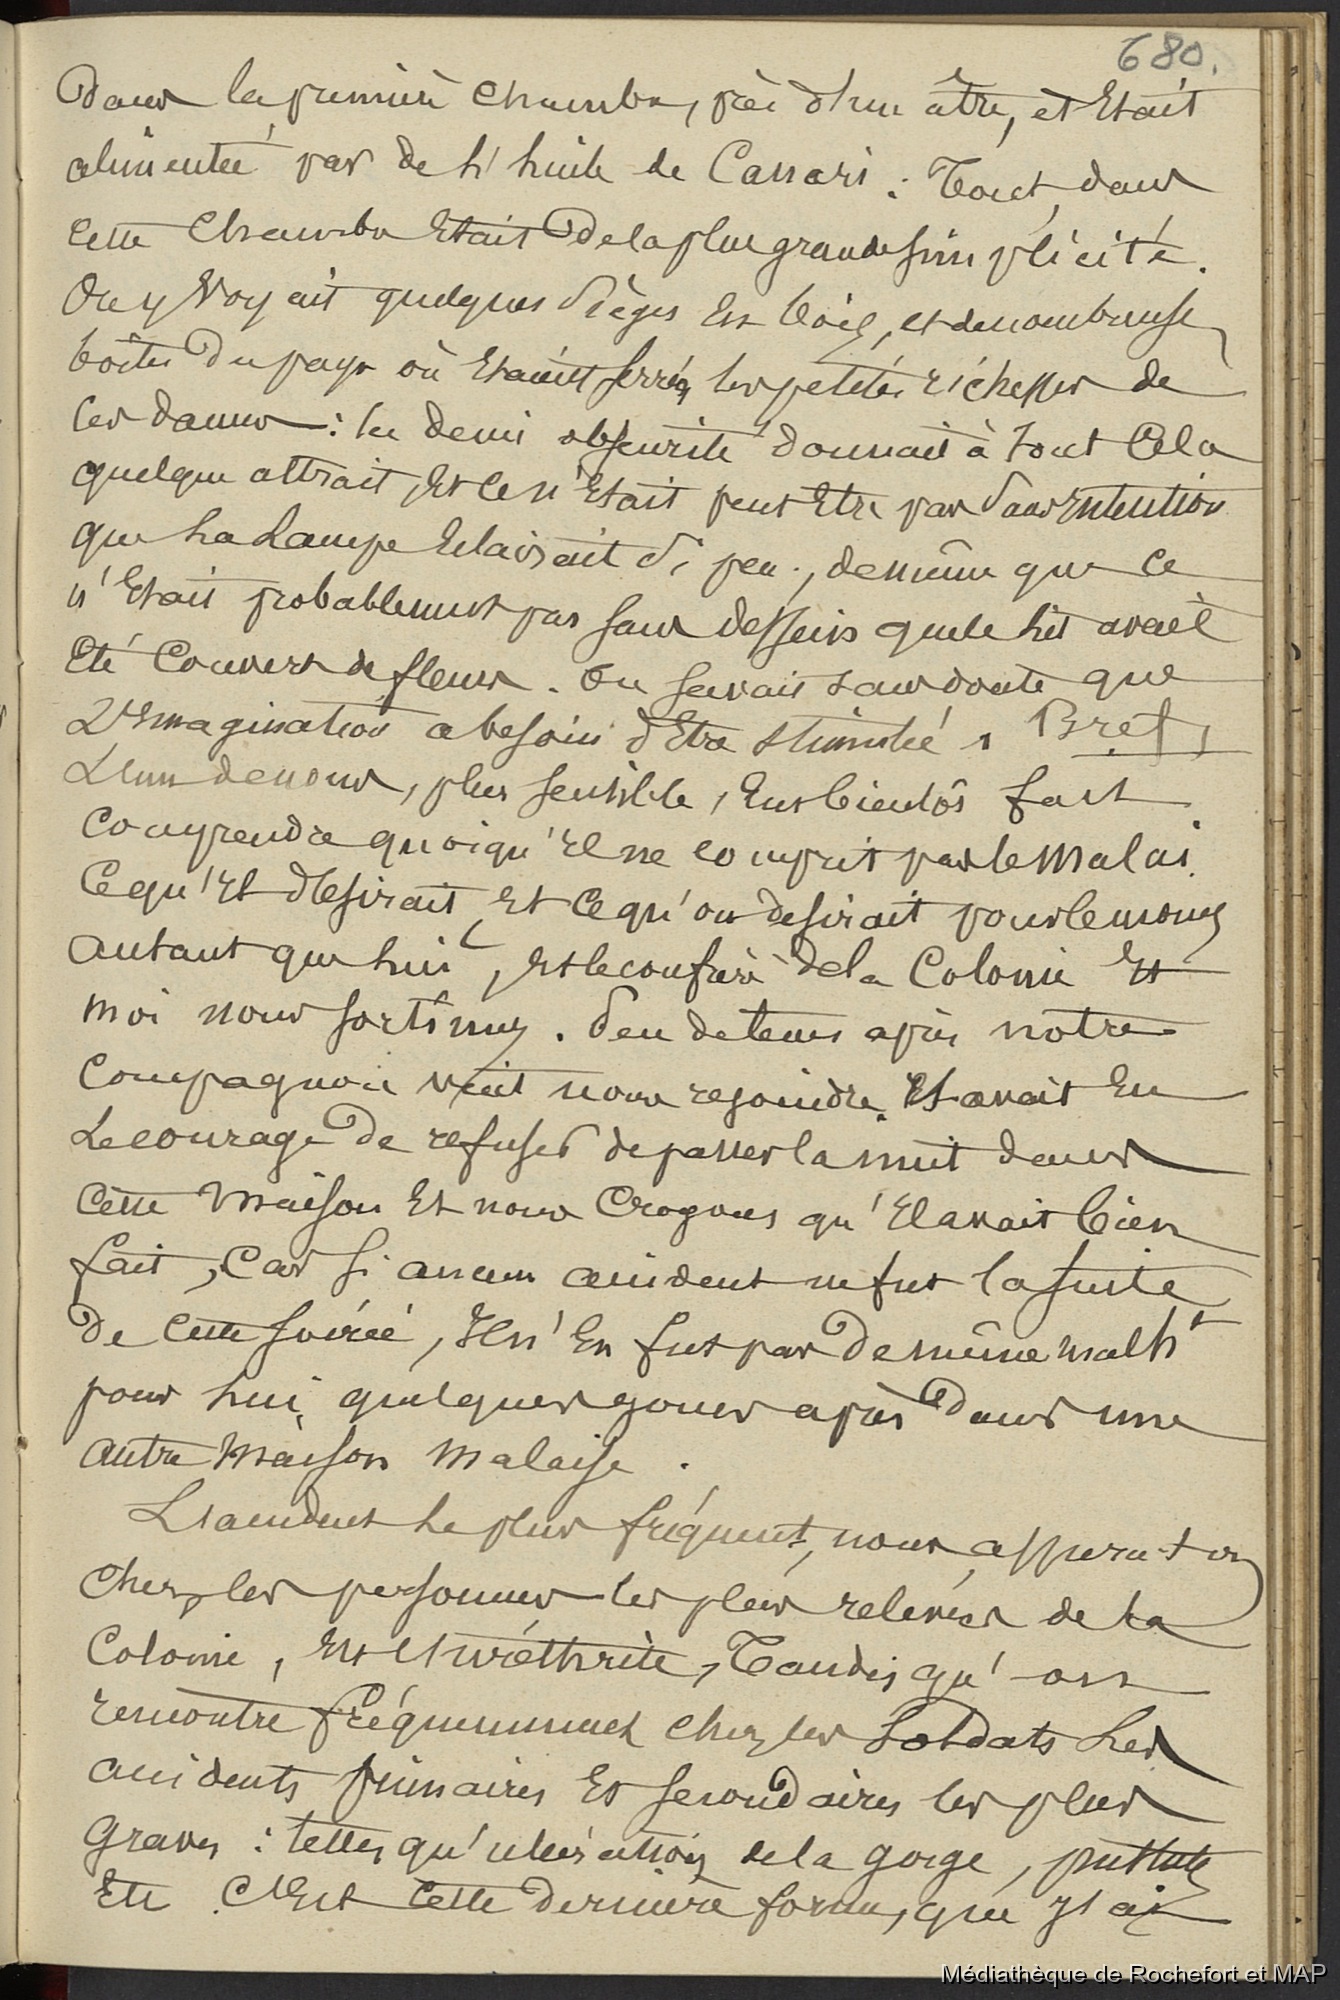 680.
Dans la première chambre, près d'un âtre, et était
alimentée par de l'huile de Canari : Tout, dans
cette chambre était de la plus grande simplicité.
On y voyait quelques sièges en bois, et de nombreuses
boîtes du pays où étaient serrées les petites richesses de
ces dames : la demi obscurité donnait à tout cela
quelque attrait, et ce n'était peut être pas sans intention
que la lampe éclairait si peu, de même que ce
n'était probablement pas sans dessein que le lit avait
été couvert de fleurs. On savait sans doute que
l'imagination a besoin d'être stimulée. Bref,
l'un de nous, plus sensible, eut bientôt fait
comprendre quoiqu'il ne comprit pas le malai
ce qu'il désirait, et ce qu'on désirait pour le moins
autant que lui, et le confrère de la Colonie et
moi nous sortîmes. Peu de temps après notre
compagnon vint nous rejoindre. Il avait eu
le courage de refuser de passer la nuit dans
cette maison et nous croyons qu'il avait bien
fait, car si aucun accident ne fut la suite
de cette soirée, il n'en fut pas de même malht
pour lui, quelques jours après dans une
autre maison malaise.
L'accident le plus fréquent, nous assura-t-on
chez les personnes les plus relevées de la
Colonie, est l'uréthrite, Tandis qu'on
rencontre fréquemment chez les soldats les
accidents primaires et secondaires les plus
graves : telles qu'ulcérations de la gorge,
etc. C'est cette dernière forme, que j'ai
Médiathèque de Rochefort et MAP